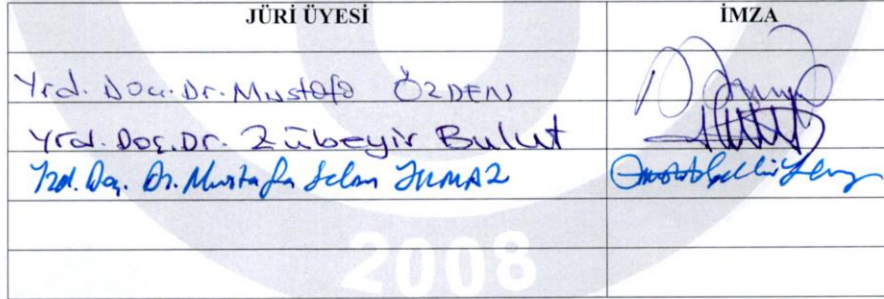 JÜRİ ÜYESİ İMZA
Yrd. Doç. Dr. Mustafa ÖZDEN
Yrd. Doç. Dr. Zübeyir Bulut
Yrd. Doç. Dr. Mustafa Selim YILMAZ
2008